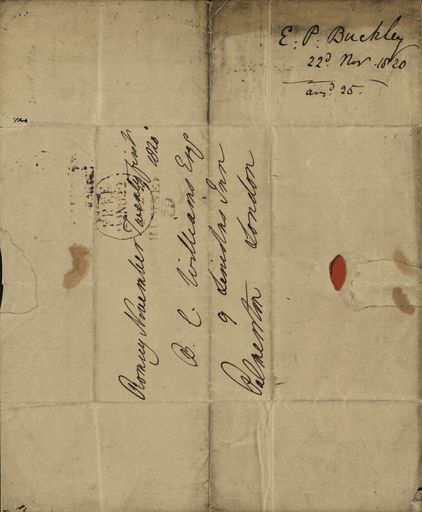 E. P. Buckley
22d Nov. 1820
ansd 25.
Romney November Twenty first
1820
B. C. Williams Esqr
9 Lincolns Inn
Palmerston London
FREE